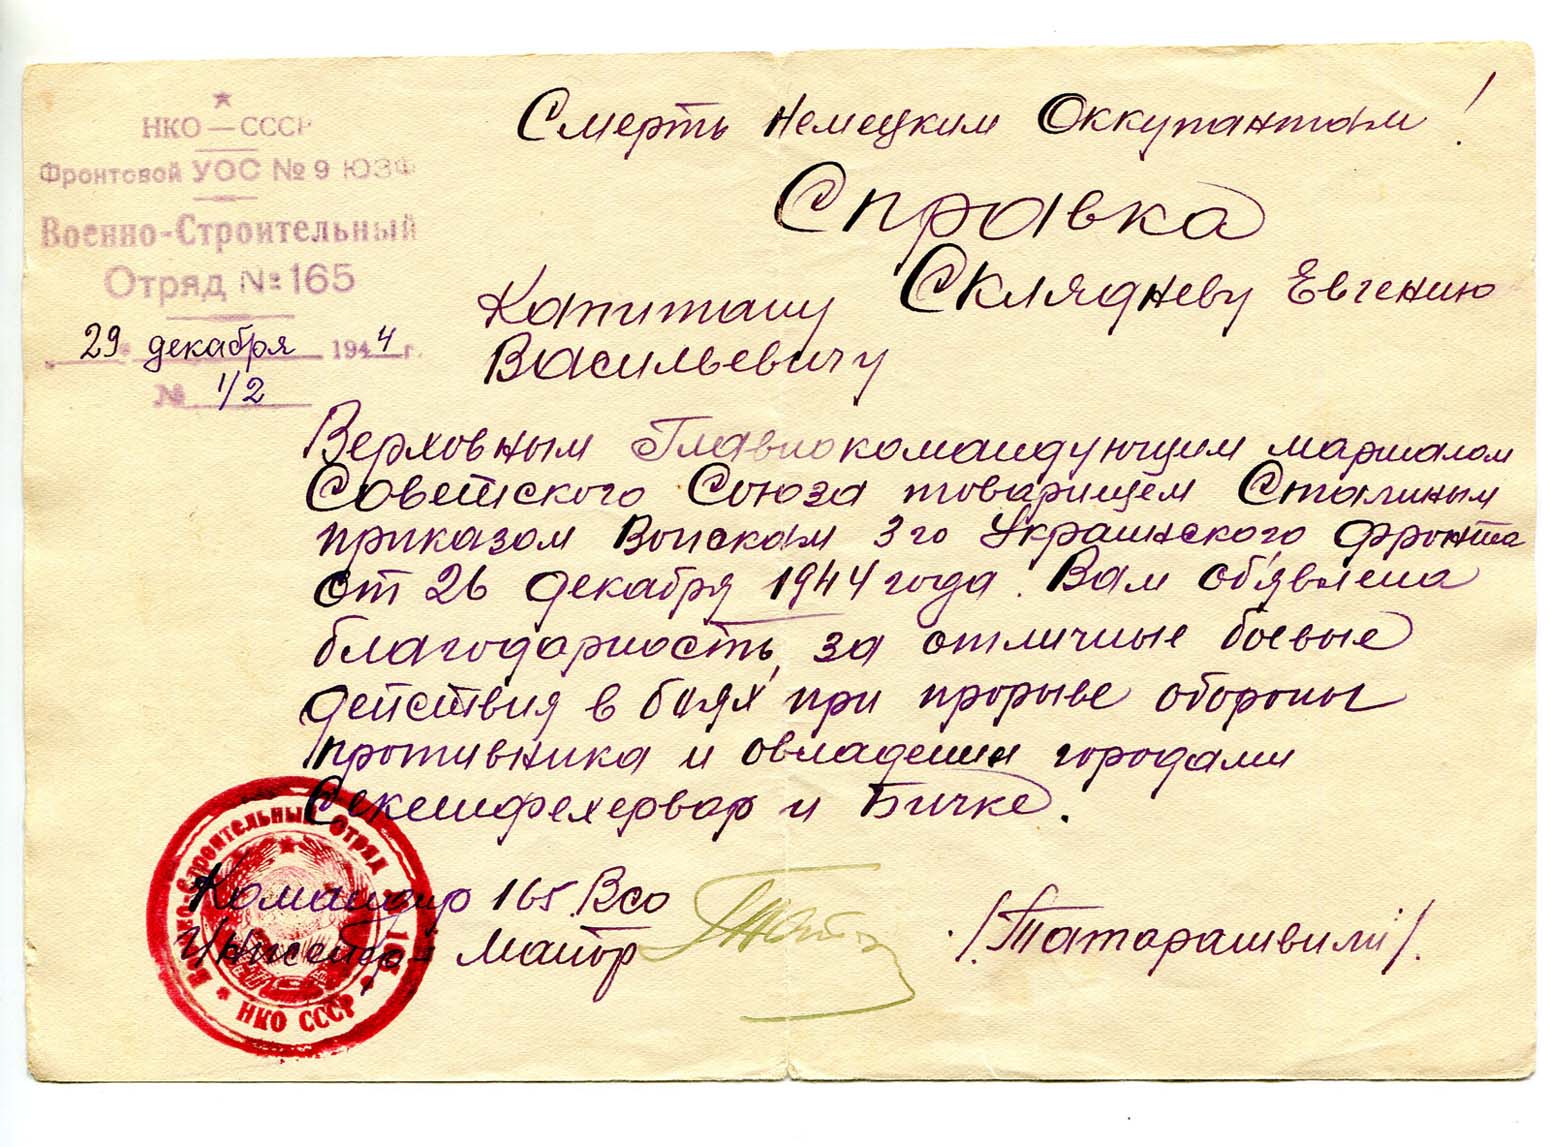 НКО — СССР
Фронтовой УОС № 9 ЮЗФ
Военно-Строительный
Отряд № 165
29 декабря 1944 г.
№ 1/2
Смерть Немецким Оккупантам!
Справка
Капитану Скляднёву Евгению
Васильевичу
Верховным Главнокомандующим маршалом
Советского Союза товарищем Сталиным
приказом Войскам 3го Украинского Фронта
от 26 декабря 1944 года. Вам об'явлена
благодарность, за отличные боевые
действия в боях при прорыве обороны
противника и овладении городами
Секешфехервар и Бичке.
Командир 165 Всо
Инженер-майор
/Татарашвили/.
Военно-Строительный Отряд № 165
НКО СССР